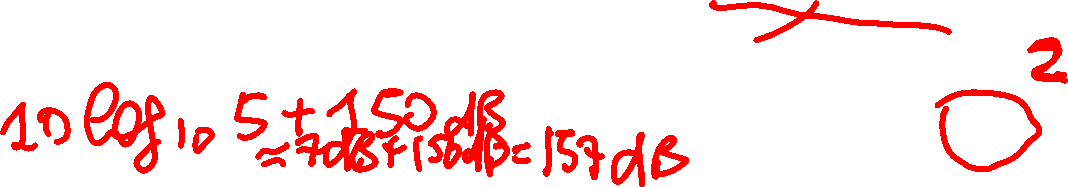 2
10 log₁₀ 5 + 150 dB
≈ 7dB + 150dB = 157 dB